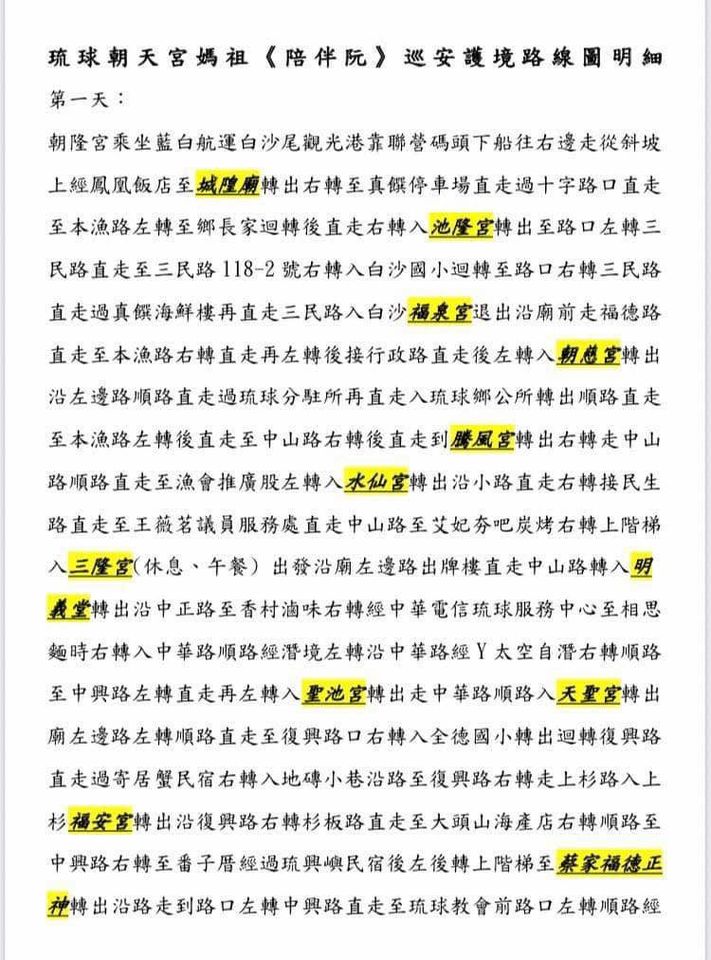 琉球朝天宮媽祖《陪伴阮》巡安護境路線圖明細
第一天：
朝隆宮乘坐藍白航運白沙尾觀光港靠聯營碼頭下船往右邊走從斜坡
上經鳳凰飯店至城隍廟轉出右轉至真饌停車場直走過十字路口直走
至本漁路左轉至鄉長家迴轉後直走右轉入池隆宮轉出至路口左轉三
民路直走至三民路118-2號右轉入白沙國小迴轉至路口右轉三民路
直走過真饌海鮮樓再直走三民路入白沙福泉宮退出沿廟前走福德路
直走至本漁路右轉直走再左轉後接行政路直走後左轉入朝慈宮轉出
沿左邊路順路直走過琉球分駐所再直走入琉球鄉公所轉出順路直走
至本漁路左轉後直走至中山路右轉後直走到騰風宮轉出右轉走中山
路順路直走至漁會推廣股左轉入水仙宮轉出沿小路直走右轉接民生
路直走至王薇茗議員服務處直走中山路至艾妃夯吧炭烤右轉上階梯
入三隆宮(休息、午餐) 出發沿廟左邊路出牌樓直走中山路轉入明
義堂轉出沿中正路至香村滷味右轉經中華電信琉球服務中心至相思
麵時右轉入中華路順路經潛境左轉沿中華路經Y太空自潛右轉順路
至中興路左轉直走再左轉入聖池宮轉出走中華路順路入天聖宮轉出
廟左邊路左轉順路直走至復興路口右轉入全德國小轉出迴轉復興路
直走過寄居蟹民宿右轉入地磚小巷沿路至復興路右轉走上杉路入上
杉福安宮轉出沿復興路右轉杉板路直走至大頭山海產店右轉順路至
中興路右轉至番子厝經過琉興嶼民宿後左後轉上階梯至蔡家福德正
神轉出沿路走到路口左轉中興路直走至琉球教會前路口左轉順路經